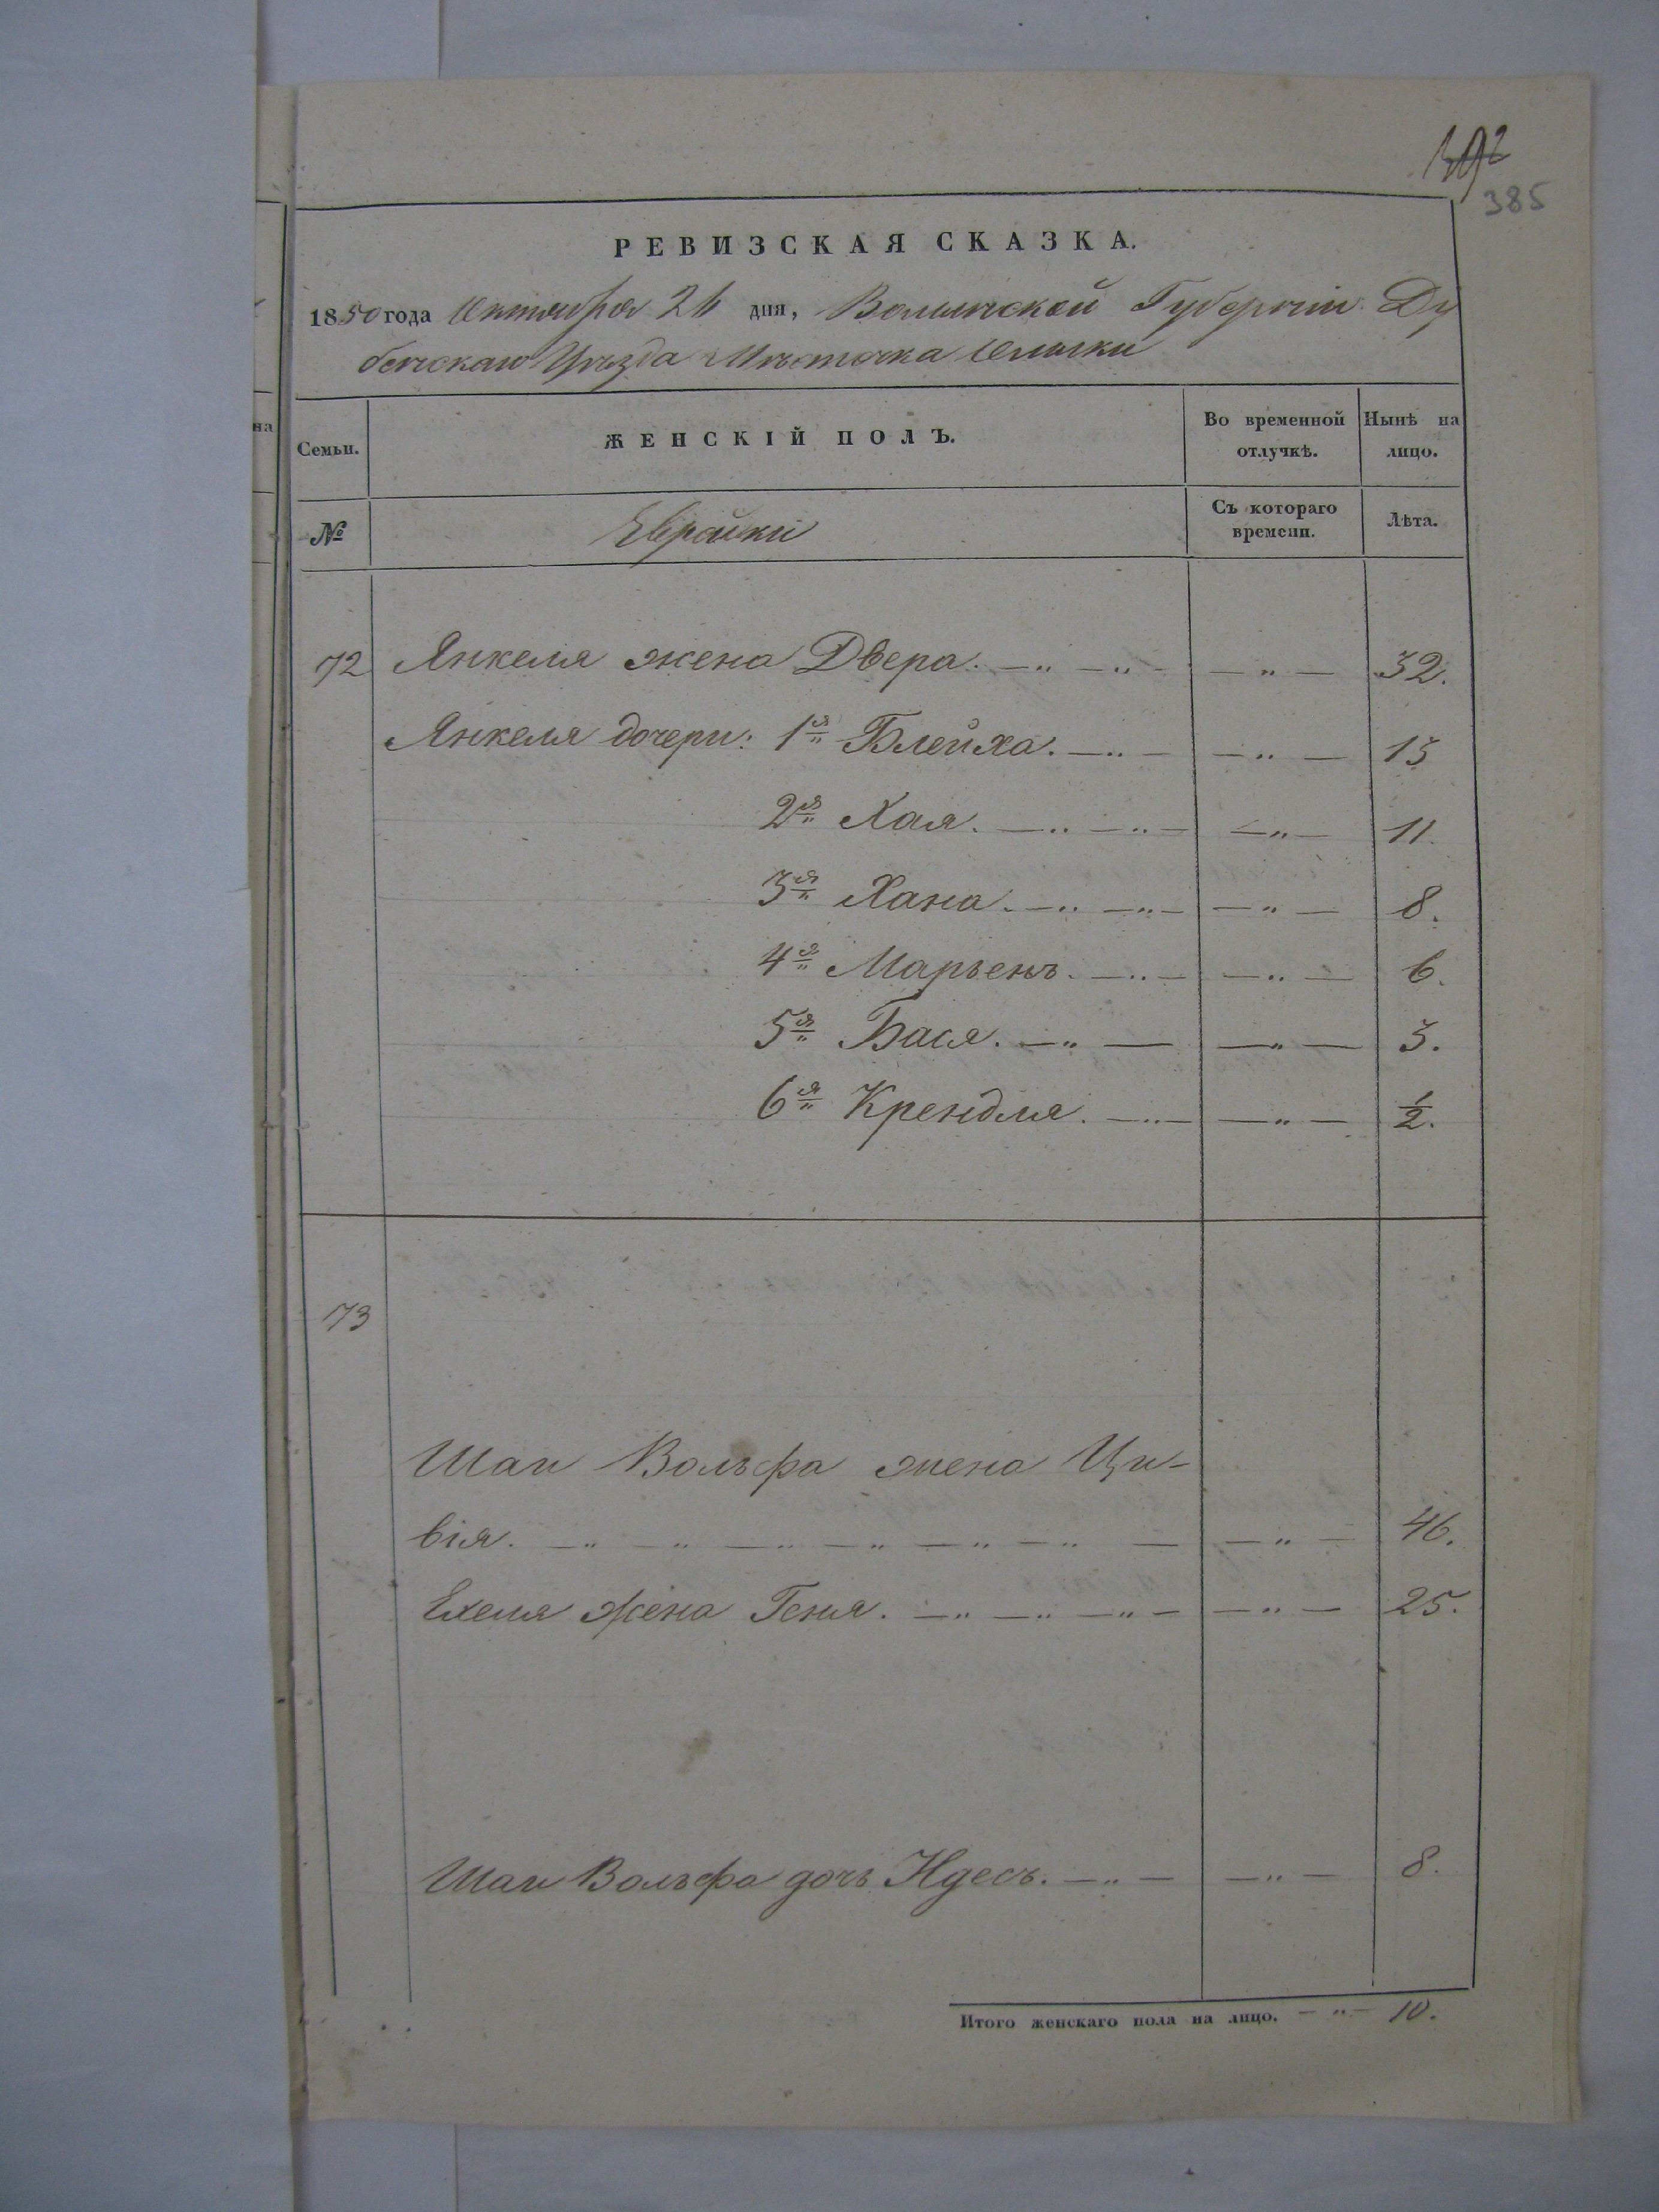 385
РЕВИЗСКАЯ СКАЗКА.
1850 года Октября 26 дня, Волынской Губерніи Ду
бенскаго Уѣзда Мѣстечка Олыки
на
Семьи.
ЖЕНСКІЙ ПОЛЪ.
Во временной отлучкѣ.
Нынѣ на лицо.
№
Еврейки
Съ котораго времени.
Лѣта.
72 Янкеля жена Двера. — „ — „ — — „ — 32.
Янкеля дочери: 1я Блейха. — „ — — „ — 13
2я Хая. — „ — „ — — „ — 11.
3я Хана. — „ — „ — — „ — 8.
4я Марьенъ. — „ — — „ — 6.
5я Бася. — „ — — „ — 3.
6я Крендля. — „ — — „ — ½.
73
Шаи Вольфа жена Ци-
вія. — „ — „ — „ — „ — „ — „ — — „ — 46.
Ехеля жена Геня. — „ — „ — „ — — „ — 25.
Шаи Вольфа дочь Идесъ. — „ — — „ — 8.
Итого женскаго пола на лицо. — „ — 10.